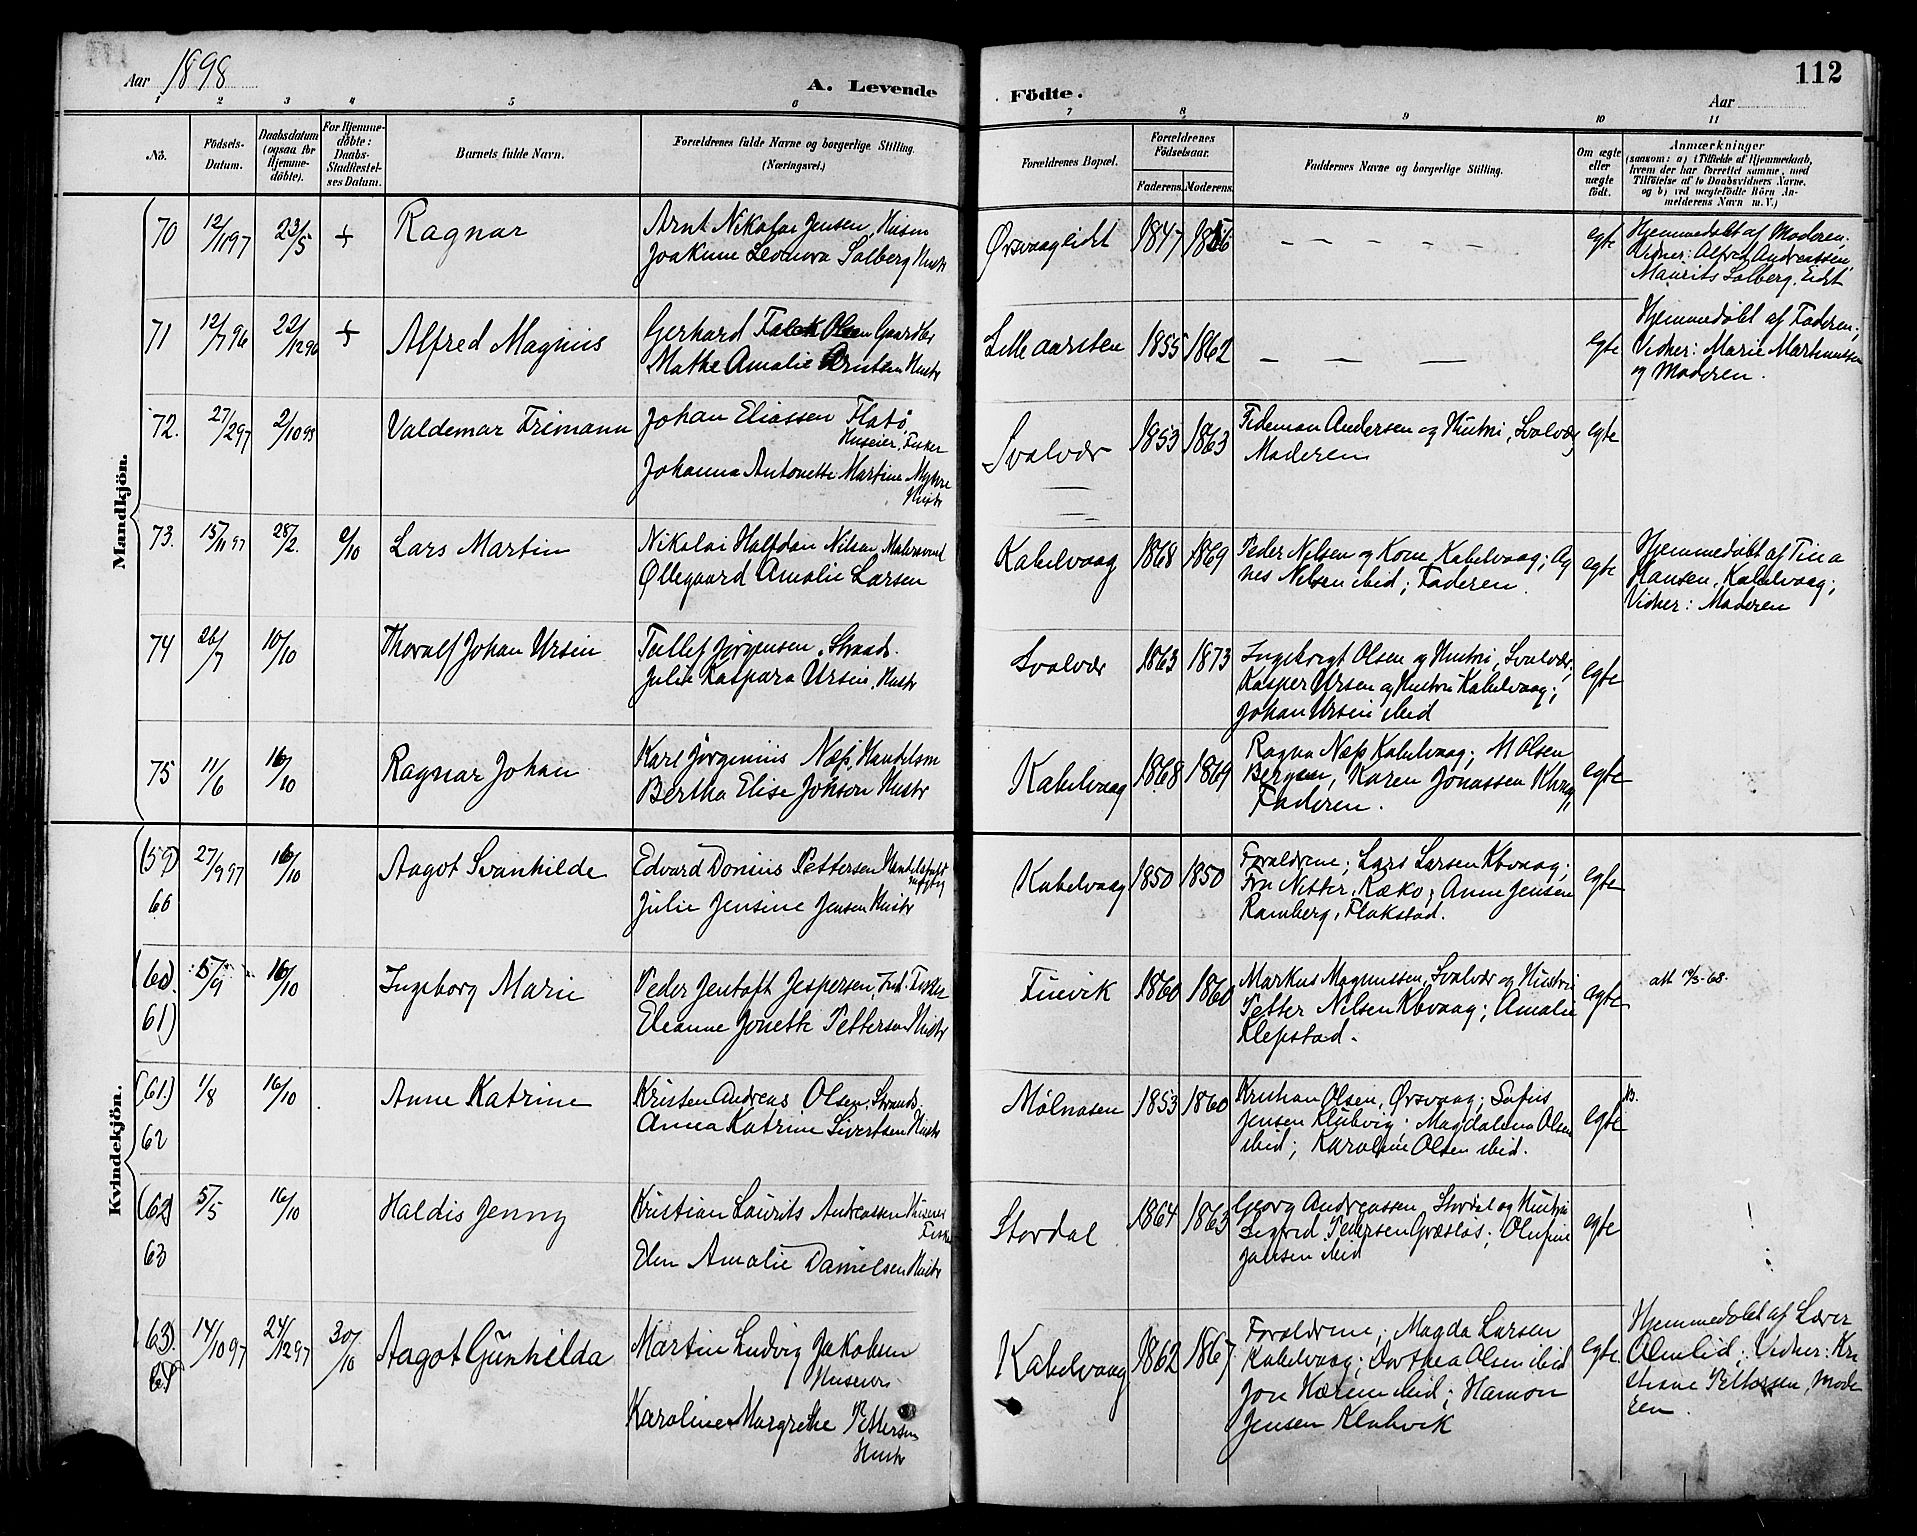 112
Aar 1898
A. Levende Födte.
Aar
1 2 3 4 5 6 7 8 9 10 11
No.
Födsels-Datum.
Daabsdatum (ogsaa for Hjemme-döbte).
For Hjemme-döbte: Daabs-Stadfæstel-ses Datum.
Barnets fulde Navn.
Forældrenes fulde Navne og borgerlige Stilling. (Næringsvei.)
Forældrenes Bopæl.
Forældrenes Födselsaar.
Faderens. Moderens.
Faddernes Navne og borgerlige Stilling.
Om ægte eller uægte födt.
Anmærkninger
(saasom: a) i Tilfælde af Hjemmedaab,
hvem der har forrettet samme, med
Tilföielse af to Daabsvidners Navne,
og b) ved uægtefödte Börn An-
melderens Navn m. V.)
Mandkjön.
70 12/11 97 23/5 + Ragnar
Arnt Nikolai Jensen, Husm
Joakime Leonora Solberg Hustr
Ørsvaageidt 1847 1856 – – – – – egte
Hjemmedøbt af Moderen;
Vidner: Alfred Andreassen,
Maurits Solberg, Eidt
71 12/7 96 22/12 96 + Alfred Magnus
Gerhard Falck Olsen Gaardbr
Mathe Amalie Arntsen Hustr
Lille aarsten 1855 1862 – – – egte
Hjemmedøbt af Faderen;
Vidner: Marie Martinussen
og Moderen.
72. 27/2 97 2/10 98 Valdemar Frimann
Johan Eliassen Flatø
Huseier, Fisker
Johanna Antonette Martine Myhre
Hustr
Svolvær 1853 1863
Fideman Andersen og Hustru, Svolvær
Moderen
egte
73. 15/11 97 28/2. 9/10 Lars Martin
Nikolai Halfdan Nilsen, Malersvend
Øllegaard Amalie Larsen
Kabelvaag 1868 1869
Peder Nilsen og Kone, Kabelvaag; Ag
nes Nelsen ibid; Faderen.
egte
Hjemmedøbt af Tina
Hansen, Kabelvaag;
Vidner: Moderen
74 26/7 10/10 Thoralf Johan Ursin
Tellef Jørgensen, Strands.
Julie Kaspara Ursin, Hustr
Svolvær 1863 1873
Ingebrigt Olsen og Hustru, Svolvær;
Kasper Ursin og Hustru Kabelvaag;
Johan Ursin ibid
egte
75 11/6 16/10 Ragnar Johan
Karl Jørginius Næss, Handelsm
Bertha Elise Johnson Hustr
Kabelvaag 1868 1869
Ragna Næss Kabelvaag; M Olsen
Bergsen, Karen Jonassen Kbvaag,
Faderen.
egte
Kvindekjön.
(59) 60 27/9 97 16/10 Aagot Svanhilde
Edvard Donius Pettersen
Julie Jensine Jensen Hustr
Kabelvaag 1850 1850
Forældrene; Lars Larsen Kbvaag;
Fru Netter, Ræko; Anne Jensen
Ramberg, Flakstad.
egte
(60) 61) 5/9 16/10 Ingeborg Marie
Peder Jentoft Jespersen, Ind. Fisker
Eleanne Jonette Pettersen Hustr
Finvik 1860 1860
Markus Magnussen, Svolvær og Hustru
Petter Nilsen Kbvaag; Amalie
Klepstad.
egte
att 19/3-68.
(61.) 62 1/8 16/10 Anne Katrine
Kristen Andreas Olsen, Strands.
Anna Katrine Sivertsen Hustr
Mølnosen 1853 1860
Kristian Olsen, Ørsvaag; Sofus
Jensen Klubvig; Magdalena Olsen
ibid; Karoline Olsen ibid.
egte
(62) 63 5/5 16/10 Haldis Jenny
Kristian Laurits Andreassen Huseier
Fisker
Elen Amalie Danielsen Hustr
Stordal 1864 1863
Georg Andreassen, Stordal og Hustru
Sigrid Pedersen Græsløs; Olufine
Jansen ibid
egte
(63) 64 14/10 97 24/12 97 30/10 Aagot Gunhilda
Martin Ludvig Jakobsen
Huseier
Karoline Margrethe Pettersen
Hustr
Kabelvaag 1862 1867
Forældrene; Magda Larsen
Kabelvaag; Dorthea Olsen ibid
Jon Hærem ibid; Hamon
Jensen Klubvik
egte
Hjemmedøbt af Lærer
Olmlid; Vidner: Kri
stiane Pettersen, Mode
ren.